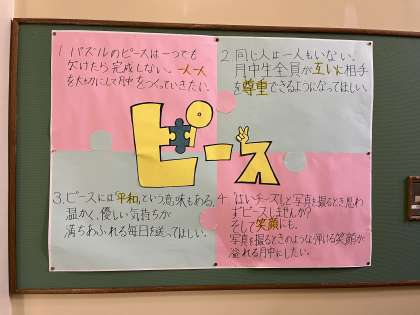 1. パズルのピースは一つでも
欠けたら完成しない。一人一人
を大切にして月中をつくっていきたい。
2. 同じ人は一人もいない。
月中生全員が互いに相手
を尊重できるようになってほしい。
ピース
3. ピースには「平和」という意味もある。
温かく、優しい気持ちが
満ちあふれる毎日を送ってほしい。
4. "はいチーズ"と写真を撮るとき思わ
ずピースしませんか?
そして笑顔にも。
写真を撮るときのような弾ける笑顔が
溢れる月中にしたい。